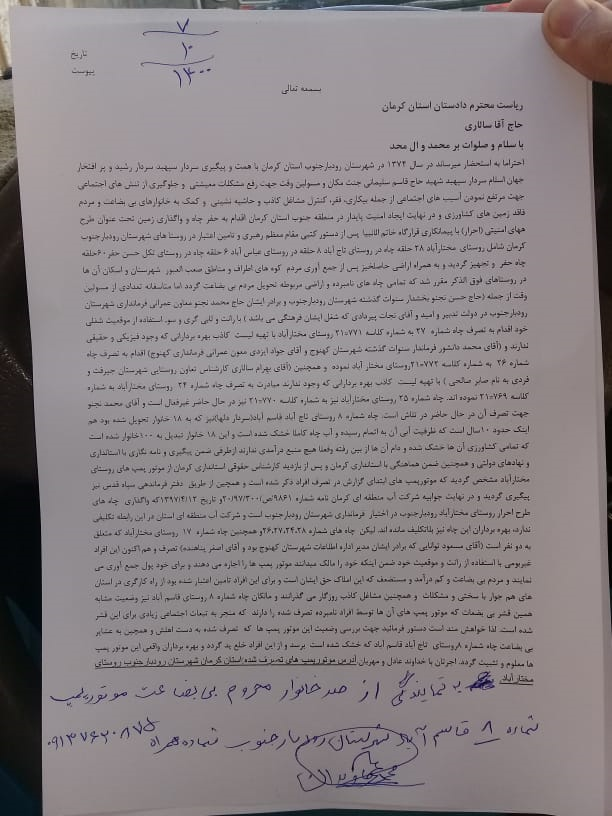 ۷
۱۰
تاریخ
۱۴۰۰
پیوست
بسمعه تعالی
ریاست محترم دادستان استان کرمان
حاج آقا سالاری
با سلام و صلوات بر محمد و ال محد
احتراما به استحضار میرساند در سال ۱۳۷۴ در شهرستان رودبارجنوب استان کرمان با همت و پیگیری سردار سپهبد سردار رشید و پر افتخار
جهان اسلام سردار سپهبد شهید حاج قاسم سلیمانی جنت مکان و مسولین وقت جهت رفع مشکلات معیشتی و جلوگیری از تنش های اجتماعی
جهت مرتفع نمودن آسیب های اجتماعی از جمله بیکاری، فقر، کنترل مشاغل کاذب و حاشیه نشینی و کمک به خانوارهای بی بضاعت و مردم
فاقد زمین های کشاورزی و در نهایت ایجاد امنیت پایدار در منطقه جنوب استان کرمان اقدام به حفر چاه و واگذاری زمین تحت عنوان طرح
ههای امنیتی (احرار) با پیمانکاری قرارگاه خاتم الانبیا پس از دستور کتبی مقام معظم رهبری و تامین اعتبار در روستا های شهرستان رودبارجنوب
کرمان شامل روستای مختارآباد ۲۸ حلقه چاه در روستای تاج آباد ۸ حلقه در روستای عباس آباد ۶ حلقه چاه در روستای تکل حسن حفر ۶۰حلقه
چاه حفر و تجهیز گردید و به همراه اراضی حاصلخیز پس از جمع آوری مردم کوه های اطراف و مناطق صعب العبور شهرستان و اسکان آن ها
در روستاهای فوق الذکر مقرر شد که تمامی چاه های نامبرده و اراضی مربوطه تحویل مردم بی بضاعت گردد اما متاسفانه تعدادی از مسولین
وقت از جمله (حاج حسن نجنو بخشدار سنوات گذشته شهرستان رودبارجنوب و برادر ایشان حاج محمد نجنو معاون عمرانی فرمانداری شهرستان
رودبارجنوب در دولت تدبیر و امید و آقای نجات پیردادی که شغل ایشان فرهنگی می باشد ) با رانت و لابی گری و سو، استفاده از موقعیت شغلی
خود اقدام به تصرف چاه شماره ۲۷ به شماره کلاسه ۷۷۱=۲۱ روستای مختارآباد با تهیه لیست کاذب بهره بردارانی که وجود فیزیکی و حقیقی
ندارند و (آقای محمد دانشور فرماندار سنوات گذشته شهرستان کهنوج و آقای جواد ایزدی معون عمرانی فرمانداری کهنوج) اقدام به تصرف چاه
۲۶ به شماره کلاسه ۷۷۲=۲۱روستای مختار آباد نموده و همچنین (آقای بهرام سالاری کارشناس تعاون روستایی شهرستان جیرفت و
فردی به نام صابر صالحی ) با تهیه لیست کاذب بهره بردارانی که وجود ندارند مبادرت به تصرف چاه شماره ۲۴ روستای مختارآباد به شماره
کلاسه ۷۶۹=۲۱ نموده اند. چاه شماره ۲۵ روستای مختارآباد نیز به شماره کلاسه ۷۷۰=۲۱ نیز در حال حاضر غیرفعال است و آقای محمد نجنو
جهت تصرف آن در حال حاضر در تلاش است. چاه شماره ۸ روستای تاج آباد قاسم آباد(سردار دلها)نیز که به ۱۸ خانوار تحویل شده بود هم
اینک حدود ۱۰سال است که ظرفیت آبی آن به اتمام رسیده و آب چاه کاملا خشک شده است و این ۱۸ خانوار تبدیل به ۱۰۰خانوار شده است
که تمامی کشاورزی آن ها خشک شده و دام آن ها از بین رفته وفعلا هیچ منبع درآمدی ندارند ازطرفی ضمن پیگیری و نامه نگاری با استانداری
و نهادهای دولتی و همچنین ضمن هماهنگی با استانداری کرمان و پس از بازدید کارشناس حقوقی استانداری کرمان از موتور پمپ های روستای
مختارآباد مشخص گردید که موتورپمپ های ابتدای گزارش در تصرف افراد ذکر شده است و همچنین از طریق دفتر فرماندهی سپاه قدس نیز
پیگیری گردید و در نهایت جوابیه شرکت آب منطقه ای کرمان نامه شماره ۹۸۶۱/ص/۲۰/۹۷/۳۰۰و تاریخ ۱۳۹۷/۴/۱۲که واگذاری چاه های
طرح احرار روستای مختارآباد رودبارجنوب در اختیار فرمانداری شهرستان رودبارجنوب است و شرکت آب منطقه ای استان در این رابطه تکلیفی
ندارد، بهره برداران این چاه نیز بلاتکلیف مانده اند. لیکن چاه های شماره ۲۶،۲۷،۲۴،۲۸و همچنین چاه شماره ۱۷ روستای مختارآباد که متعلق
به دو نفر است (آقای مسعود توانایی که برادر ایشان مدیر اداره اطلاعات شهرستان کهنوج بود و آقای اصغر پناهنده) تصرف و هم اکنون این افراد
غیربومی با استفاده از رانت و موقعیت خود ضمن اینکه خود را مالک میدانند موتور پمپ ها را اجاره می دهند و برای خود پول جمع آوری می
نمایند و مردم بی بضاعت و کم درآمد و مستضعف که این املاک حق ایشان است و برای این افراد تامین اعتبار شده بود از راه کارگری در استان
های هم جوار با سختی و مشکلات و همچنین مشاغل کاذب روزگار می گذرانند و مالکان چاه شماره ۸ روستای قاسم آباد نیز وضعیت مشابه
همین قشر بی بضاعت که موتور پمپ های آن ها توسط افراد نامبرده تصرف شده را دارند که منجر به تبعات اجتماعی زیادی برای این قشر
شده است. لذا خواهش مند است دستور فرمائید جهت بررسی وضعیت این موتور پمپ ها که تصرف شده به دست اهلش و همچنین به عشایر
بی بضاعت چاه شماره ۸روستای تاج آباد قاسم آباد که خشک شده است برسد و از این افراد خلع ید گردد و بهره برداران واقعی این موتور پمپ
ها معلوم و تثبیت گردد. اجرتان با خداوند عادل و مهربان آدرس موتورپمپ های تصرف شده:استان کرمان شهرستان رودبارجنوب روستای
مختارآباد.
به نمایندگی از صد خانوار محروم بی بضاعت موتورپمپ
شماره ۸ قاسم آباد شهرستان رودبار جنوب شماره همراه